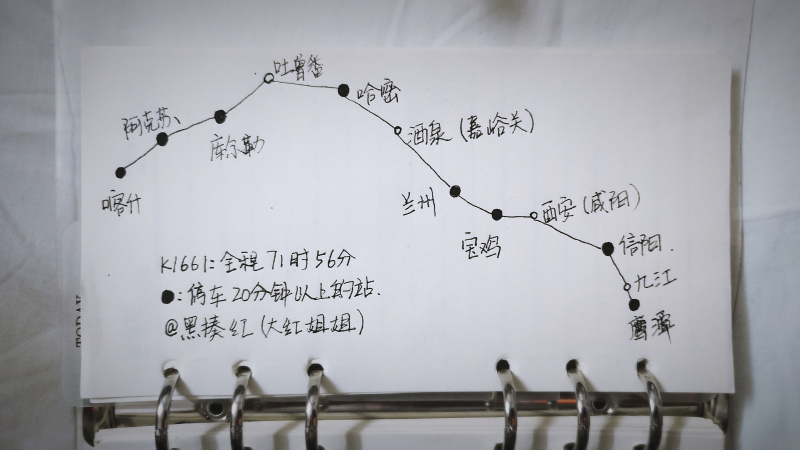 吐鲁番
哈密
阿克苏
库尔勒
酒泉(嘉峪关)
喀什
兰州
西安(咸阳)
宝鸡
信阳.
九江
鹰潭
K1661:全程71时56分
●:停车20分钟以上的站.
@黑揍红(大红姐姐)
TODAY